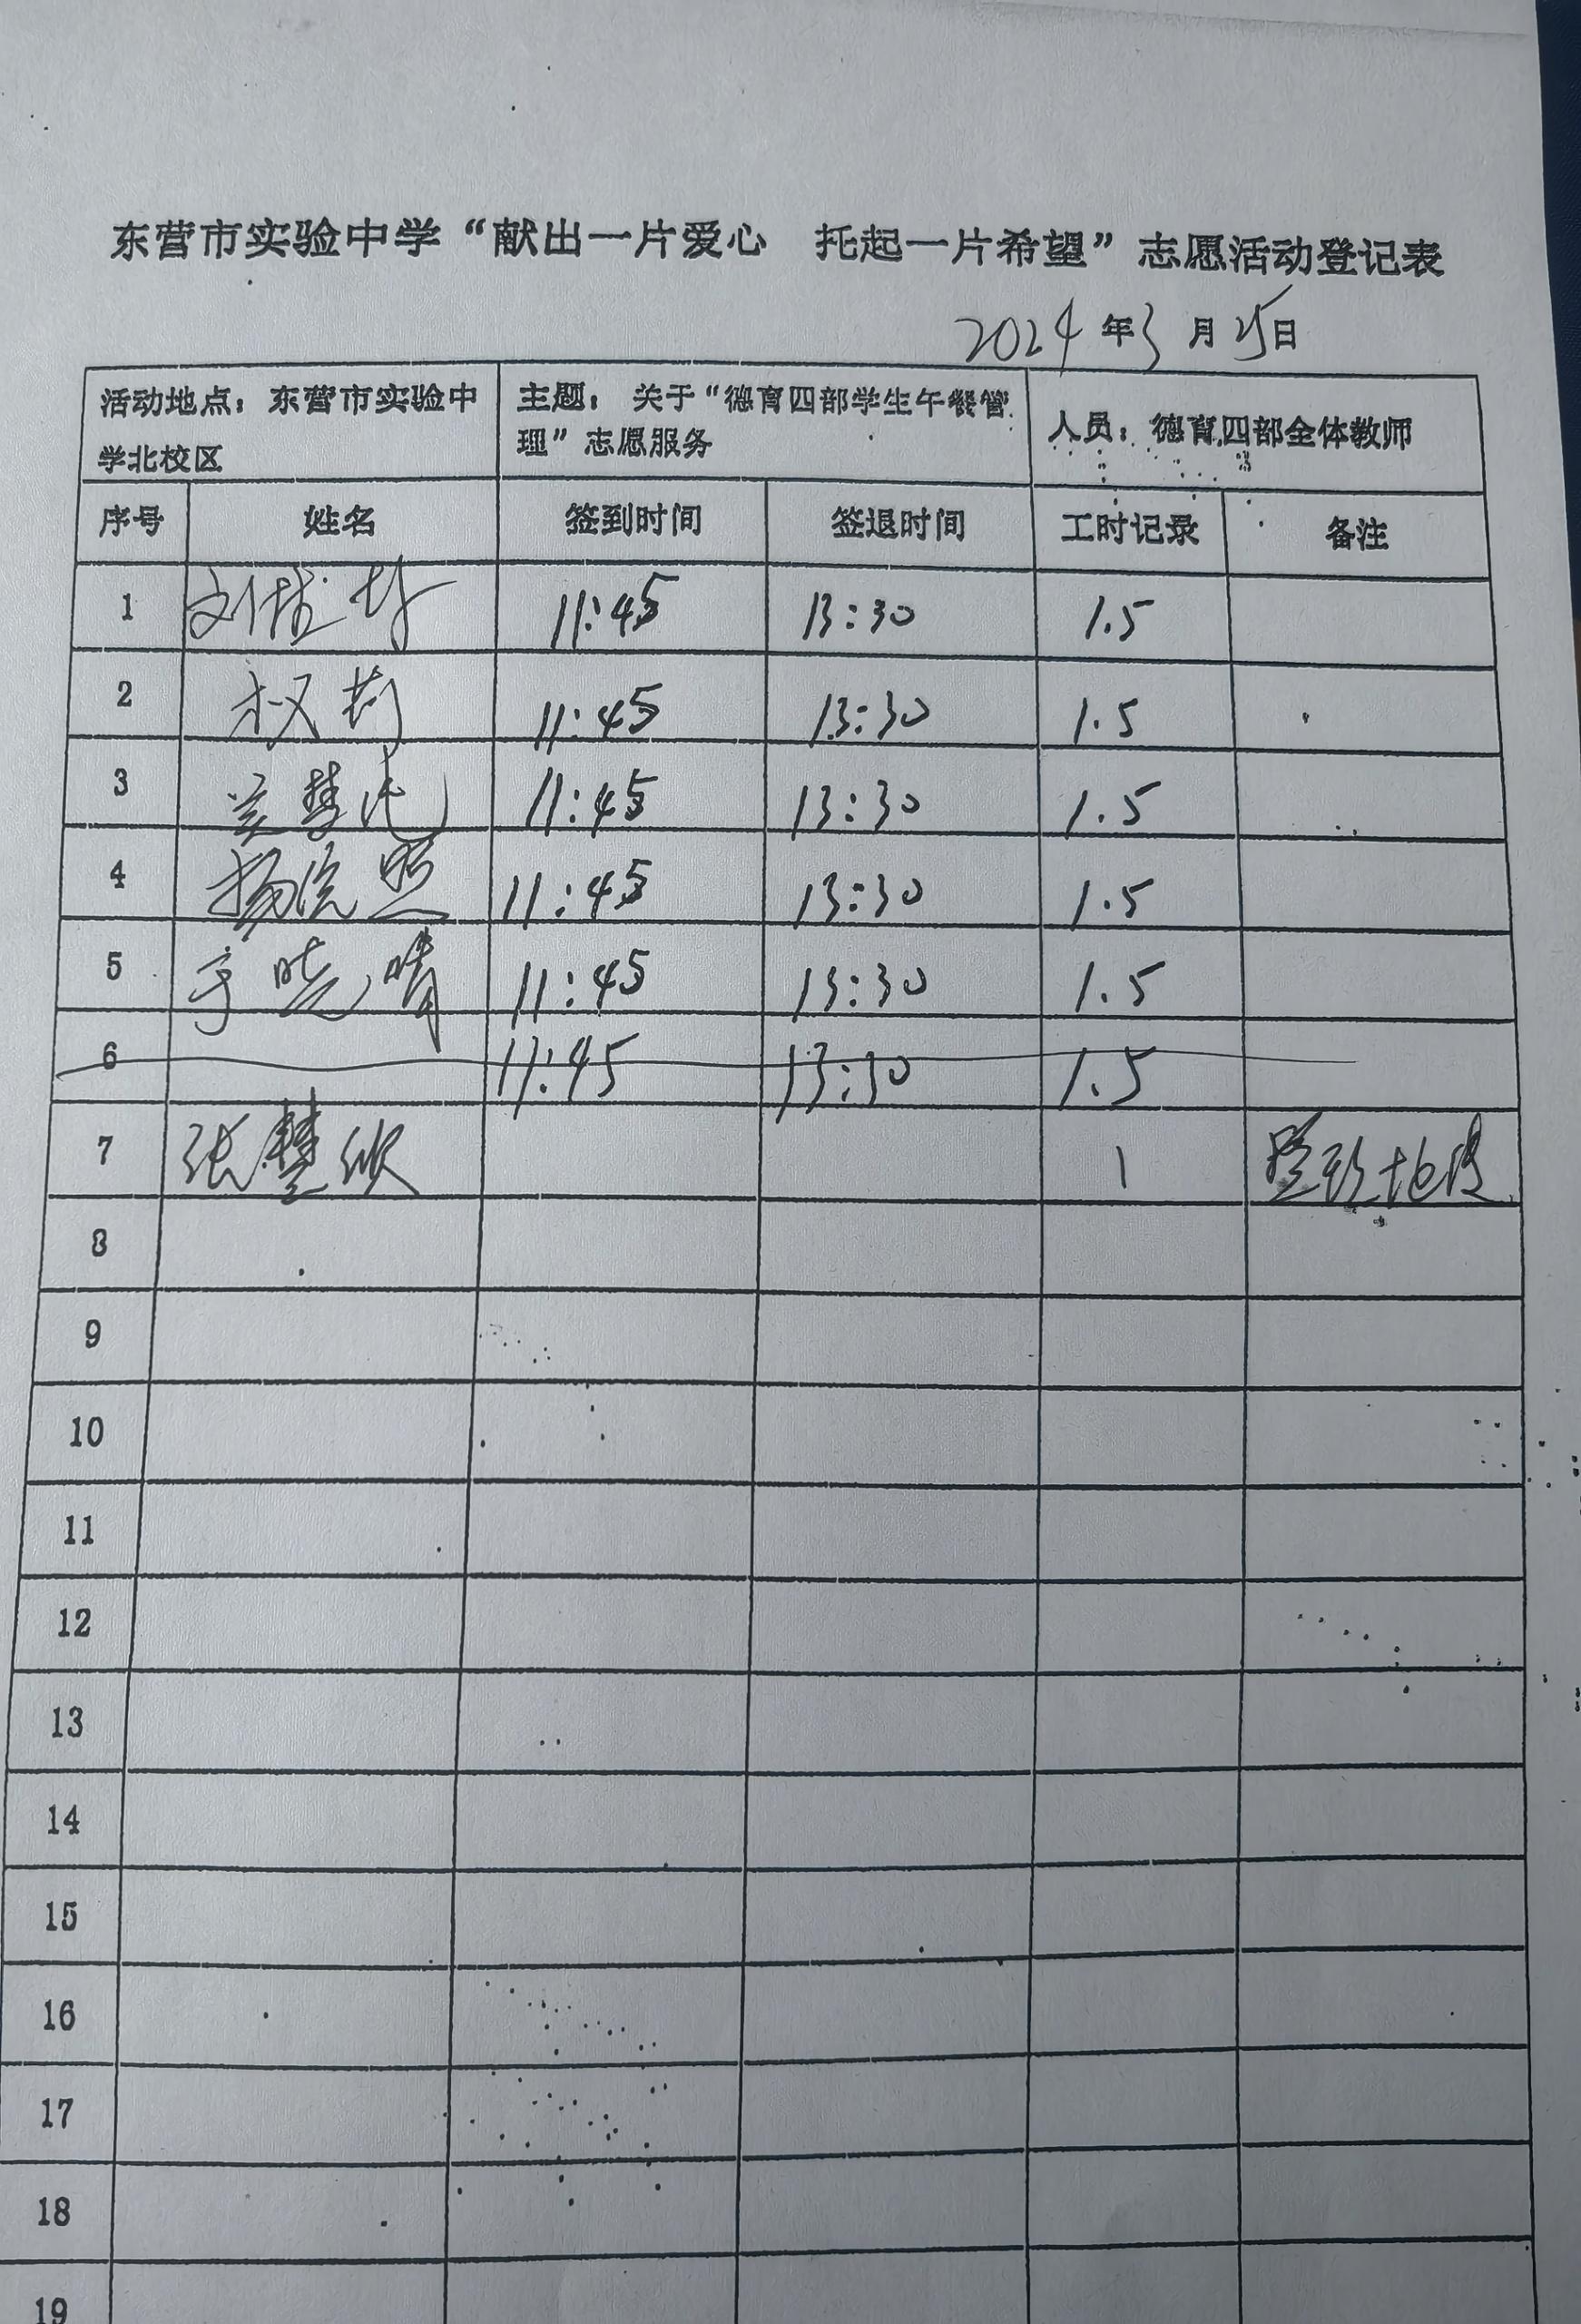 东营市实验中学“献出一片爱心 托起一片希望”志愿活动登记表
2024年3月25日
活动地点：东营市实验中学北校区 主题：关于“德育四部学生午餐管理”志愿服务 人员：德育四部全体教师
序号 姓名 签到时间 签退时间 工时记录 备注
1 刘 11:45 13:30 1.5
2 权莉 11:45 13:30 1.5
3 11:45 13:30 1.5
4 杨 照 11:45 13:30 1.5
5 于晓晴 11:45 13:30 1.5
6 11:45 13:30 1.5
7 张慧欣 1
8
9
10
11
12
13
14
15
16
17
18
19